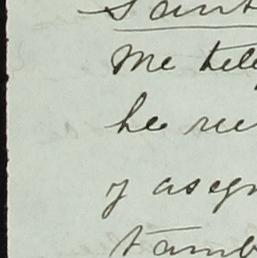 Sant
Me tele
he rec
y asegu
tamb